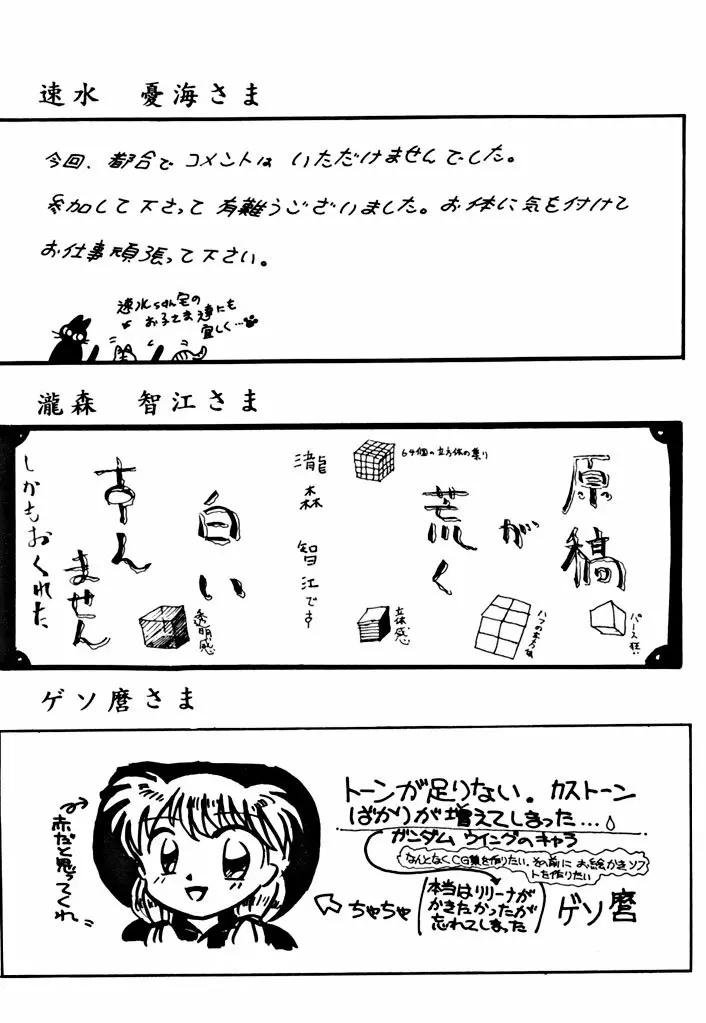 速水 憂海さま
今回、都合で コメントは いただけませんでした。
参加して下さって 有難うございました。お体に気を付けて
お仕事頑張って下さい。
速水ちゃん宅の
お子さま達にも
宜しく…
瀧森 智江さま
原稿
が
荒く
64個の立方体の集り
瀧森 智江です
白い
すん
ません
しかもおくれた
パース狂い
立体感
透明感
ゲソ麿さま
トーンが足りない。カストーン
ばかりが増えてしまった…。
ガンダム ウイングのキャラ
なんとなくCG集を作りたい。その前に お絵かきソフ
トを作りたい
本当はリリーナが
かきたかったが
忘れてしまった
ゲソ麿
ちゃちゃ
赤だと思ってくれ。